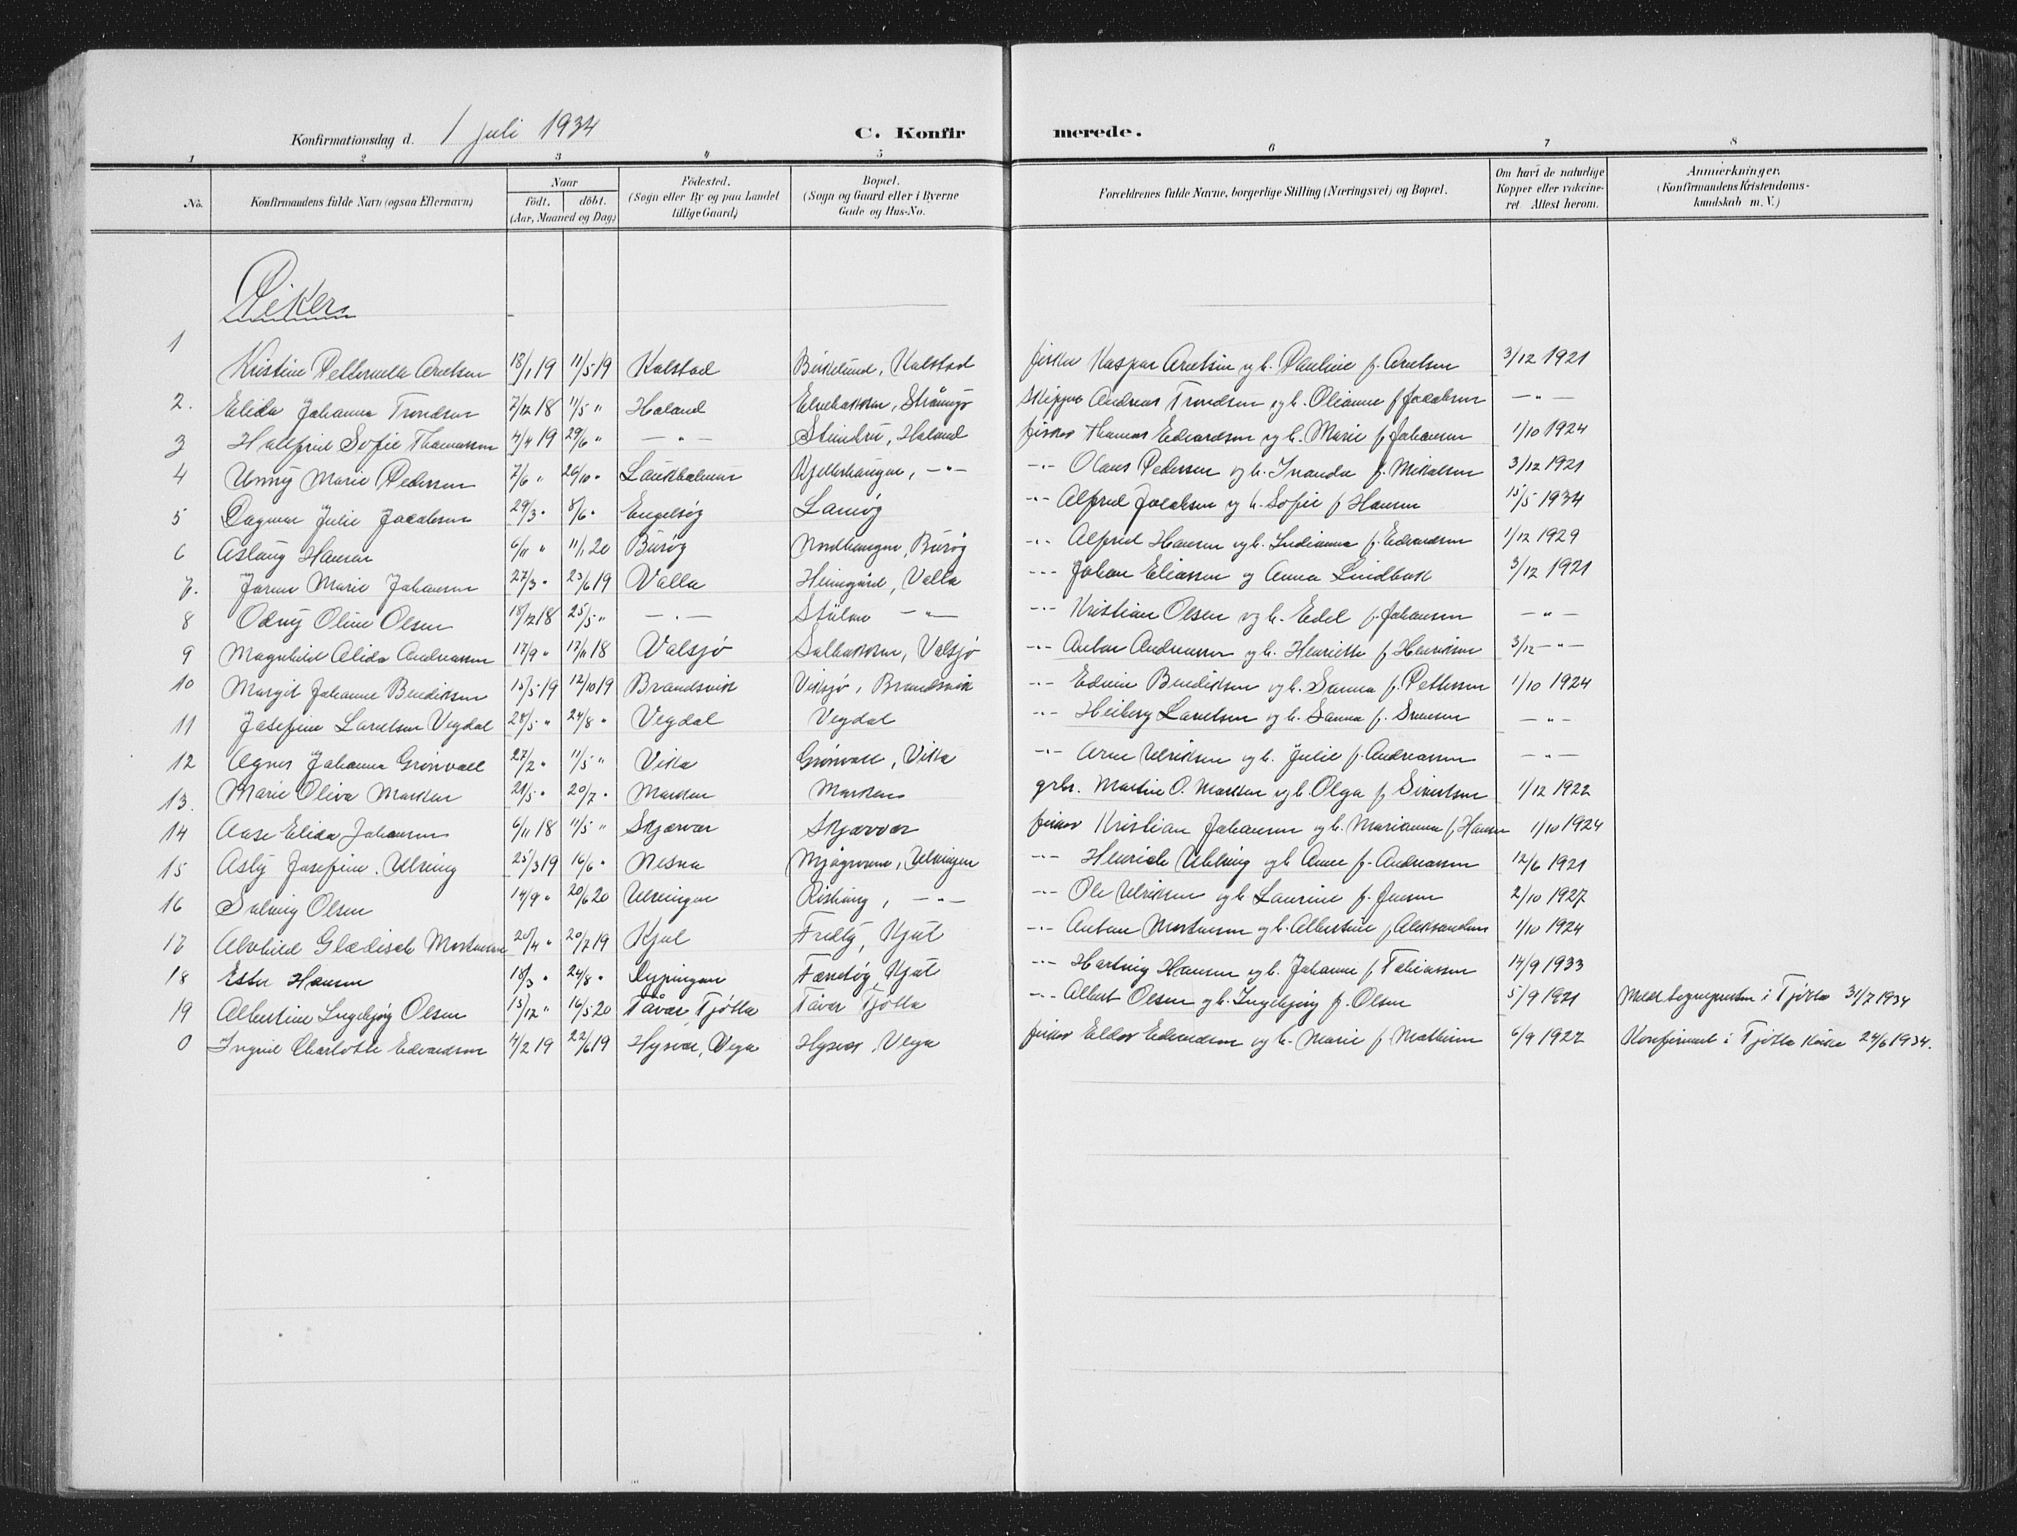 Konfirmationsdag d. 1 juli 1934 C. Konfirmerede.
1 2 3 4 5 6 7 8
No. Konfirmandens fulde Navn (ogsaa Efternavn) Naar født. døbt. (Aar, Maaned og Dag) Födested. (Sogn eller By og paa Landet tillige Gaard) Bopæl. (Sogn og Gaard eller i Byerne Gade og Hus-No. Forældrenes fulde Navne, borgerlige Stilling (Næringsvei) og Bopæl. Om havt de naturlige Kopper eller vakcineret. Attest herom. Anmærkninger. (Konfirmandens Kristendomskundskab m. V.)
Piker
1 Kristine Petternela Arntsen 18/1 19 11/5 19 Kalstad Birkelund, Kalstad fisker Kaspar Arntsen og h. Pauline f. Arntsen 3/12 1921
2. Elida Johanna Trondsen 7/12 18 11/5 " Haland Elvebakken, skipper Andreas Trondsen og h. Olianne f Jacobsen — " —
3 Hallfrid Sofie Thomassen 4/4 19 29/6 " — " — Steindru, Haland fisker Thomas Edvardsen og h. Marie f. Johansen 1/10 1924
4 Unny Marie Pedersen 7/6 " 26/10 " Laukholmen Kjellerhaugen, — " — -"- Olaus Pedersen og h. Inanda f. Mikalsen 3/12 1921
5 Dagmar Julie Jacobsen 29/3 " 8/6 " Engelsøy Lamøy -"- Alfred Jacobsen og h. Sofie f Hansen 15/5 1934
6 Aslaug Hansen 6/11 " 11/1 20 Burøy Nordhaugen, Burøy -"- Alfred Hansen og h. Indianna f. Edvardsen 1/12 1929
7. Jorun Marie Johansen 27/3 " 23/6 19 Valla Heimgård, Valla -"- Johan Eliassen og Anna Lindbak 3/12 1921
8 Odny Oline Olsen 18/12 18 25/5 " — " — Stülen — " — -"- Kristian Olsen og h. Edel f. Johansen — " —
9 Magnhild Alida Andreassen 17/9 " 17/11 18 Valsjø Salbakken, Valsjø -"- Anton Andreassen og h. Henriette f Henriksen 3/12 — " —
10 Margit Johanne Bendiksen 15/5 19 12/10 19 Brandsvik Viksjø, Brandsvik -"- Edvin Bendiksen og h. Sanna f. Pettersen 1/10 1924
11 Josefine Lorntsen Vegdal 28/5 " 24/8 " Vegdal Vegdal -"- Heiberg Lorntsen og h. Sanna f. Svensen — " —
12 Agnes Johanna Grønvall 27/2 " 11/5 " Vika Grønvall, Vika -"- Arne Ulriksen og h. Julie f. Andreassen — " —
13. Marie Oliva Marken 21/5 " 20/7 " Marken Marken grbr. Martin O. Marken og h. Olga f Sivertsen 1/12 1922
14 Aase Elida Johansen 6/11 18 11/5 " Skjærvær Skjærvær fisker Kristian Johansen og h. Marianna f. Hansen 1/10 1924
15 Asty Josefine Ulving 25/3 19 16/6 " Nesna Ulvingen -"- Henrich Ulving og h. Anne f. Andreassen 12/6 1921
16 Solveig Olsen 14/9 " 20/6 20 Ulvingen Rishaug, — " — -"- Ole Ulriksen og h. Laurine f. Jensen 2/10 1927
17 Alvhild Glædisch Mortensen 20/4 " 20/7 19 Kjul Fredly, Kjul -"- Anton Mortensen og h. Albertine f. Aleksandersen 1/10 1924
18 Ester Hansen 18/3 " 24/8 " Rypingen Færøy, Kjul -"- Hartvig Hansen og h. Johanne f Tobiassen 14/9 1933
19 Albertine Ingebjørg Olsen 15/12 " 16/5 20 Tåvær, Tjøtta Tåvær Tjøtta -"- Albert Olsen og h. Ingebjørg f. Olsen 5/9 1921 Meldt sogneprestn i Tjøtta 31/7 1934
0 Ingrid Charlotte Edvardsen 4/2 19 22/6 19 Hysvær, Vega Hysvær, Vega fisker Eldor Edvardsen og h. Marie f. Mathisen 6/9 1927 Konfirmert i Tjøtta kirke 24/6 1934.